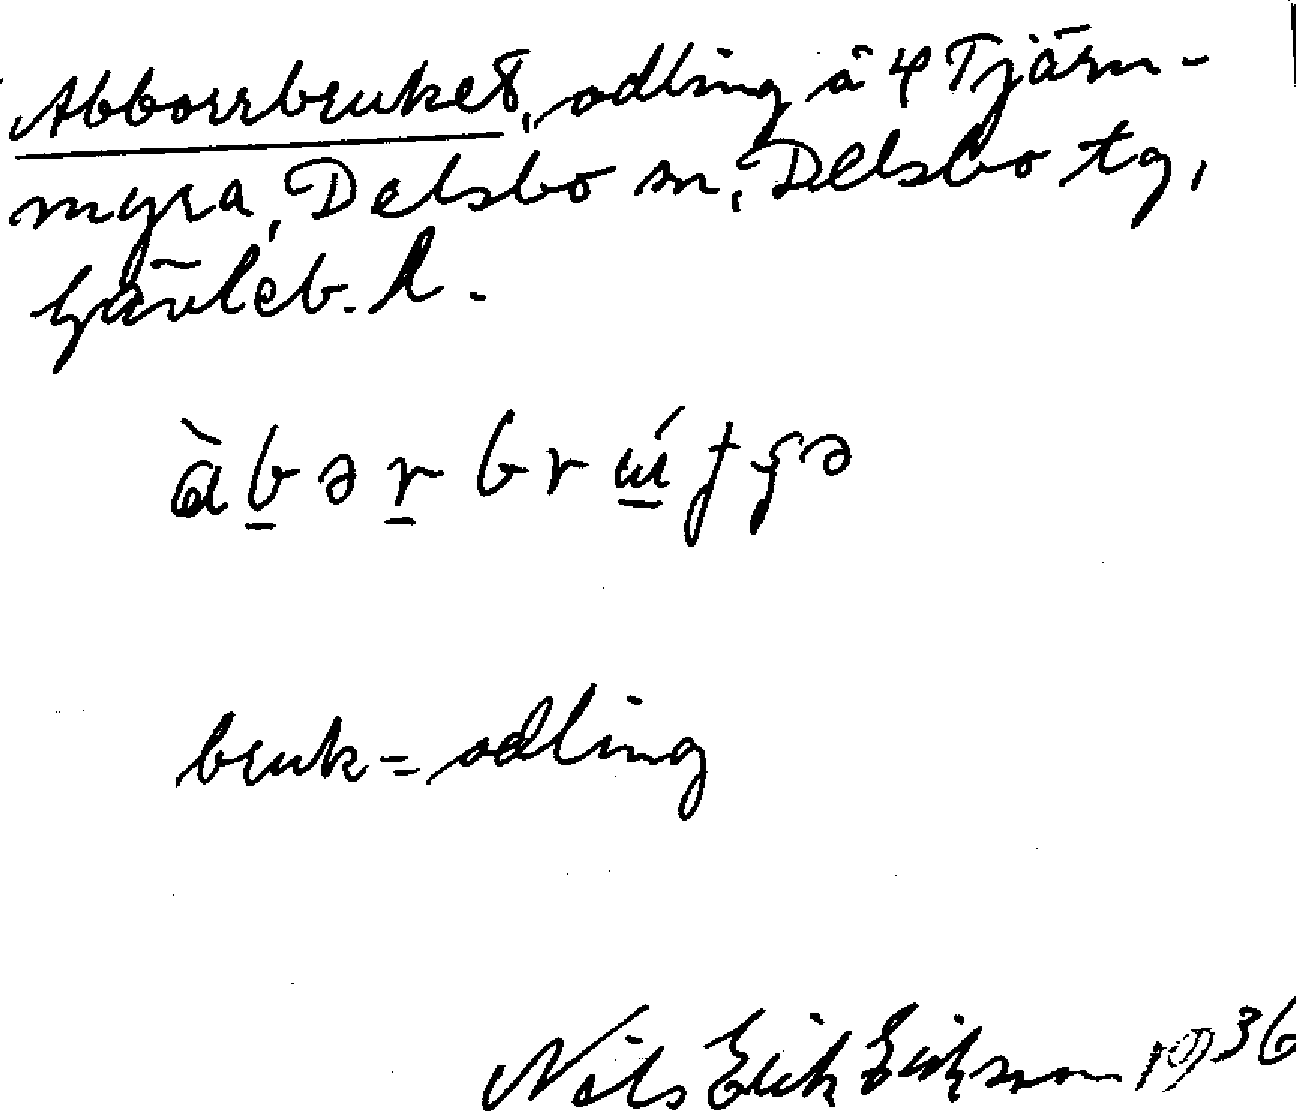 Abborrbruket, odling å 4 Tjärn-
myra, Delsbo sn, Delsbo tg,
Gävleb. l.
àbər brútɕə
bruk = odling
Nils Erik Erikson 1936